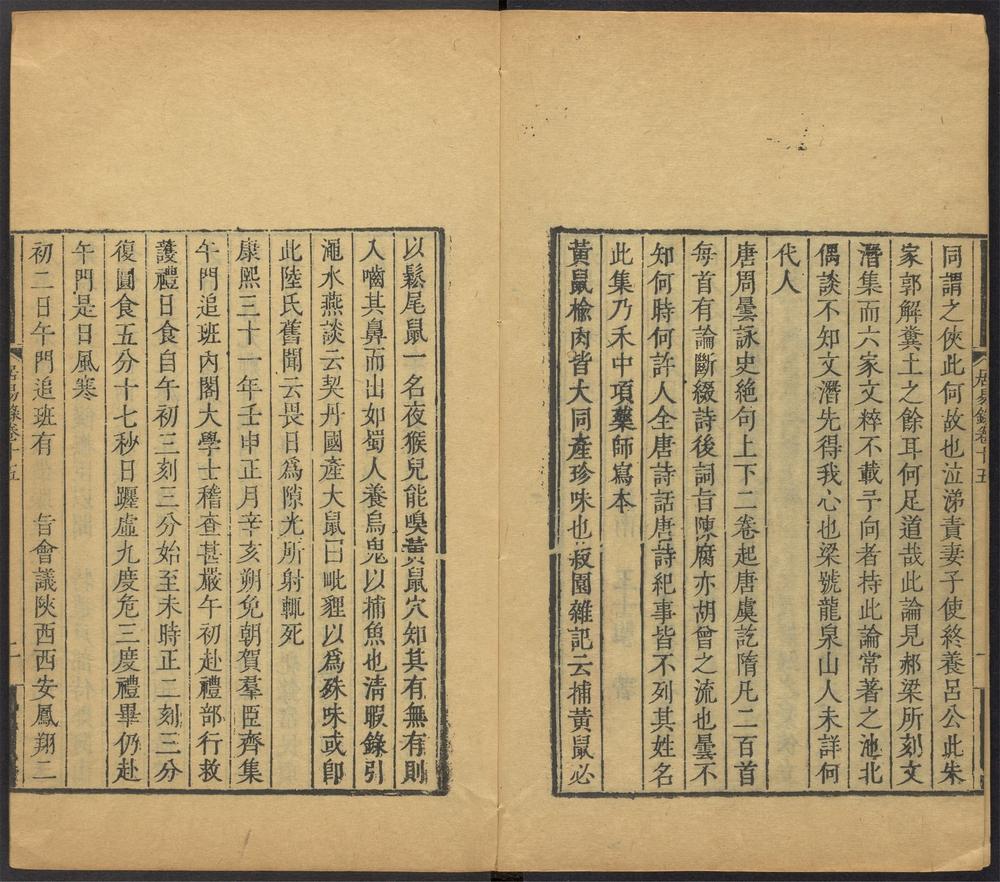 居易錄卷十五
一
同謂之俠此何故也泣涕責妻子使終養呂公此朱
家郭解糞土之餘耳何足道哉此論見郝梁所刻文
潛集而六家文粹不載予向者持此論常著之池北
偶談不知文潛先得我心也梁號龍泉山人未詳何
代人
唐周曇詠史絶句上下二卷起唐虞訖隋凡二百首
每首有論斷綴詩後詞旨陳腐亦胡曾之流也曇不
知何時何許人全唐詩話唐詩紀事皆不列其姓名
此集乃禾中項藥師寫本
黃鼠楡肉皆大同產珍味也菽園雜記云捕黃鼠必
以鬆尾鼠一名夜猴兒能嗅黃鼠穴知其有無有則
入嚙其鼻而出如蜀人養烏鬼以捕魚也淸暇錄引
澠水燕談云契丹國產大鼠曰毗貍以爲殊味或卽
此陸氏舊聞云畏日爲隙光所射輒死
康熙三十一年壬申正月辛亥朔免朝賀羣臣齊集
午門追班內閣大學士稽查甚嚴午初赴禮部行救
護禮日食自午初三刻三分始至未時正二刻三分
復圓食五分十七秒日躔虛九度危三度禮畢仍赴
午門是日風寒
初二日午門追班有 旨會議陜西西安鳳翔二
居易錄卷十五
二